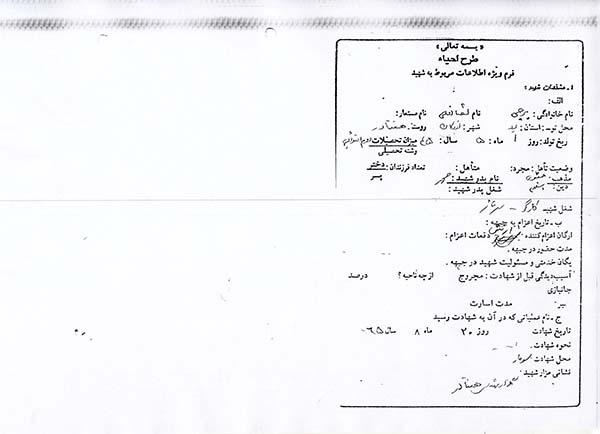 « بسمه تعالی »
طرح احیاء
فرم ویژه اطلاعات مربوط به شهید
۱ـ مشخصات شهید :
الف:
نام خانوادگی: نام نام مستعار:
محل تولد: استان: یزد شهر: اردکان روستا:
تاریخ تولد: روز ۱ ماه: ۵ سال: ۴۵ میزان تحصیلات
رشته تحصیلی
وضعیت تأهل: مجرد: متأهل: تعداد فرزندان: دختر
پسر
مذهب: نام پدر شهید:
دین: شغل پدر شهید:
شغل شهید کارگر - سرباز
ب ـ تاریخ اعزام به جبهه :
ارگان اعزام کننده: دفعات اعزام:
مدت حضور در جبهه .
یگان خدمتی و مسئولیت شهید در جبهه .
آسیب دیدگی قبل از شهادت: مجروح از چه ناحیه؟ درصد
جانبازی
مدت اسارت
ج ـ نام عملیاتی که در آن به شهادت رسید
تاریخ شهادت روز ۳۰ ماه ۸ سال ۶۵
نحوه شهادت.
محل شهادت سومار
نشانی مزار شهید: